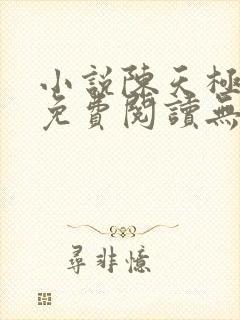 小說陳天極
免費閱讀無
尋非憶